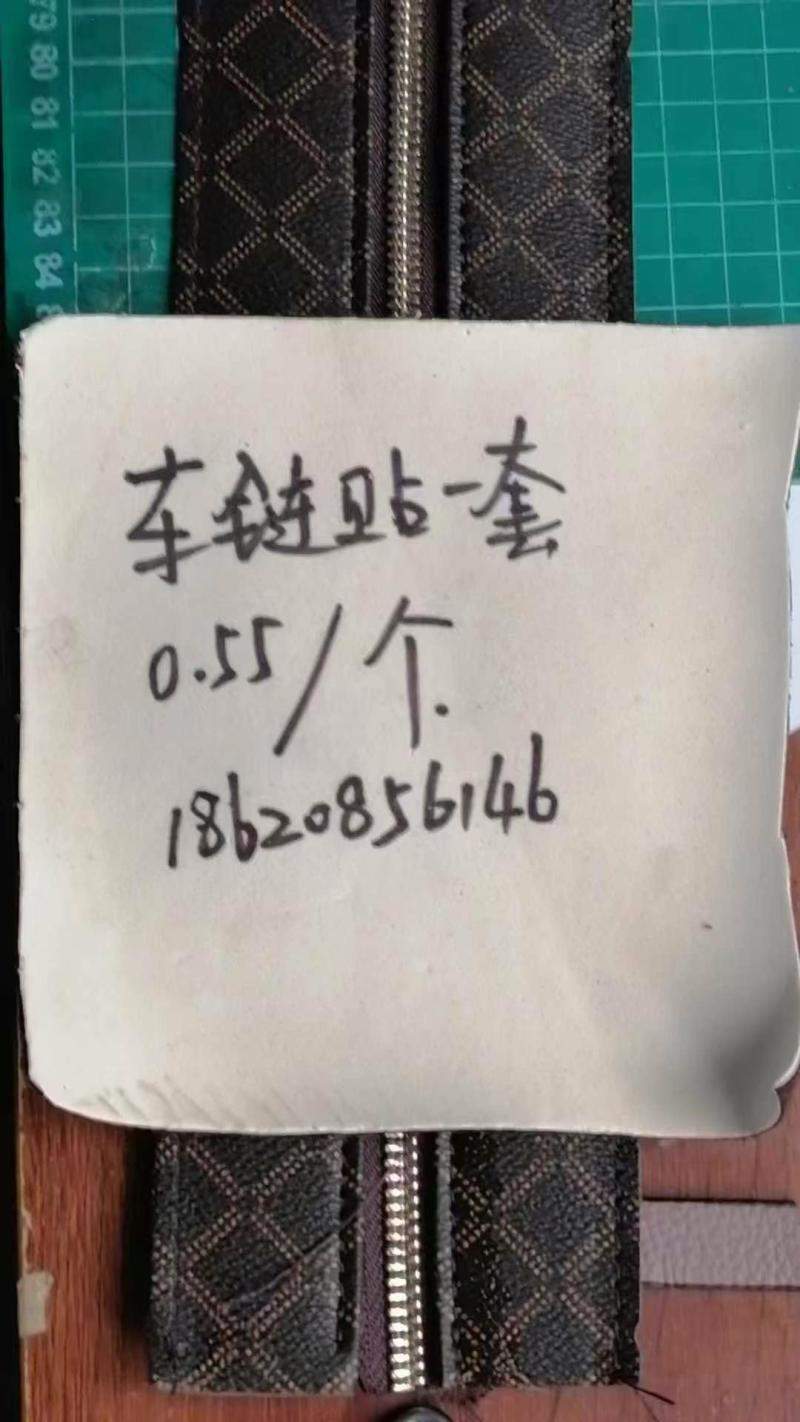 79 80 81 82 83 84
车链贴一套
0.55/个.
18620856146